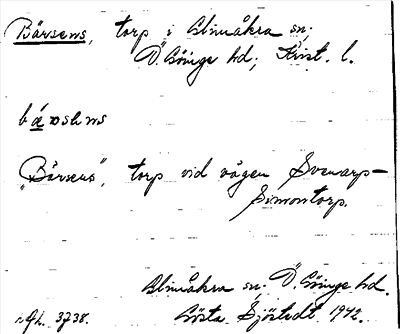 Bärsens, torp i Almåkra sn;
Ö. Göinge hd; Krist. l.
"Bärsens", torp vid vägen Svenarp-
Simontorp.
Almåkra sn. Ö. Göinge hd.
Gösta Sjöstedt 1942.
3738.